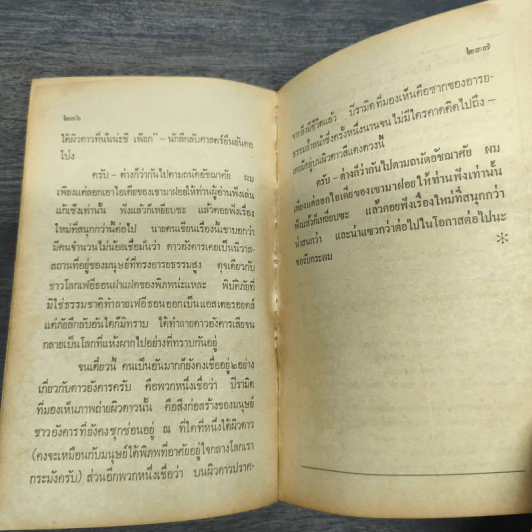 ๒๓๖
ใต้ผิวดาวที่นั่นน่ะซี เพียก" – นักลึกลับศาสตร์ยืนยันคอ
โป่ง
ครับ – ต่างก็ว่ากันไปตามถนัดอัชฌาศัย ผม
เพียงแค่ลอกเอาไอเดียของเขามาฝอยให้ท่านผู้อ่านฟังเล่น
แก้เซ็งเท่านั้น ฟังแล้วก็เหยียบซะ แล้วคอยฟังเรื่อง
ใหม่ที่สนุกกว่านี้ต่อไป นายคนเขียนเรื่องนี้เขาบอกว่า
มีคนจำนวนไม่น้อยเชื่อมั่นว่า ดาวอังคารเคยเป็นนิวาส-
สถานที่อยู่ของมนุษย์ที่ทรงอารยธรรมสูง ดุจเดียวกับ
ชาวโลกเฟอีธอนฝาแฝดของพิภพน่ะแหละ พิบัติภัยที่
มิใช่ธรรมชาติทำลายเฟอีธอนออกเป็นแอสเตอรอยด์
แต่ภัยลึกลับอันใดก็มิทราบ ได้ทำลายดาวอังคารเสียจน
กลายเป็นโลกที่แห้งผากไปอย่างที่ทราบกันอยู่
จนเดี๋ยวนี้ คนเป็นอันมากก็ยังคงเชื่ออยู่๒อย่าง
เกี่ยวกับดาวอังคารครับ คือพวกหนึ่งเชื่อว่า ปิรามิด
ที่มองเห็นภาพถ่ายผิวดาวนั้น คือสิ่งก่อสร้างของมนุษย์
ชาวอังคารที่ยังคงซุกซ่อนอยู่ ณ ที่ใดที่หนึ่งใต้ผิวดาว
(คงจะเหมือนกับมนุษย์ใต้พิภพที่อาศัยอยู่ใจกลางโลกเรา
กระมังครับ) ส่วนอีกพวกหนึ่งเชื่อว่า บนผิวดาวปราศ-
๒๓๗
จากสิ่งมีชีวิตแล้ว ปิรามิดที่มองเห็นคือซากของอารย-
ธรรมล้ำหน้าซึ่งครั้งหนึ่งนานจน ไม่มีใครคาดคิดไปถึง –
เคยมีอยู่บนผิวดาวสีแดงดวงนี้
ครับ – ต่างก็ว่ากันไปตามถนัดอัชฌาศัย ผม
เพียงแค่ลอกไอเดียของเขามาฝอยให้ท่านฟังเท่านั้น
ฟังแล้วก็เหยียบซะ แล้วคอยฟังเรื่องใหม่ที่สนุกกว่า
น่าสนกว่า และน่าแซวกว่าต่อไปในโอกาสต่อไปนะ
ขอรับกระผม